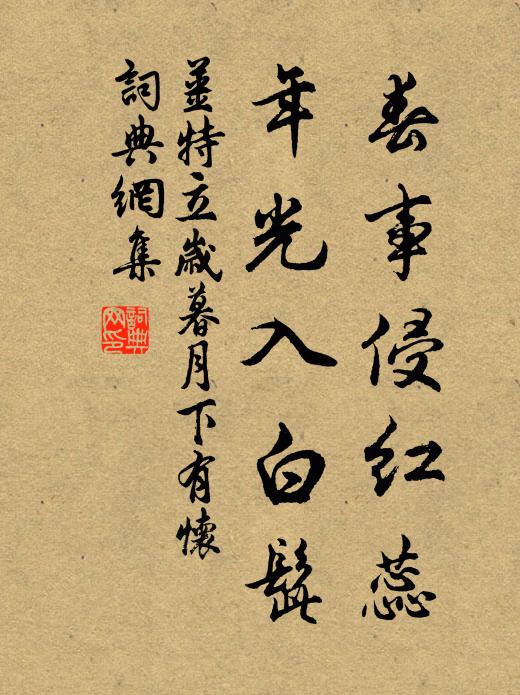 春事侵紅蕊
年光入白髭
薑特立歲暮月下有懷
詞典網集
詞典
网印